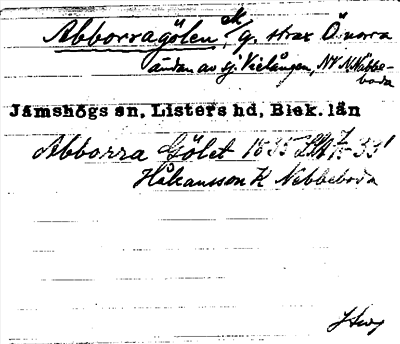 Abborragölen, g. strax Ö. norra
ändan av sj. Vielången, NV N. Näbbe-
boda
Jämshögs sn, Listers hd, Blek. län
Abborra Gölet 1635
Håkansson K Nebbeboda